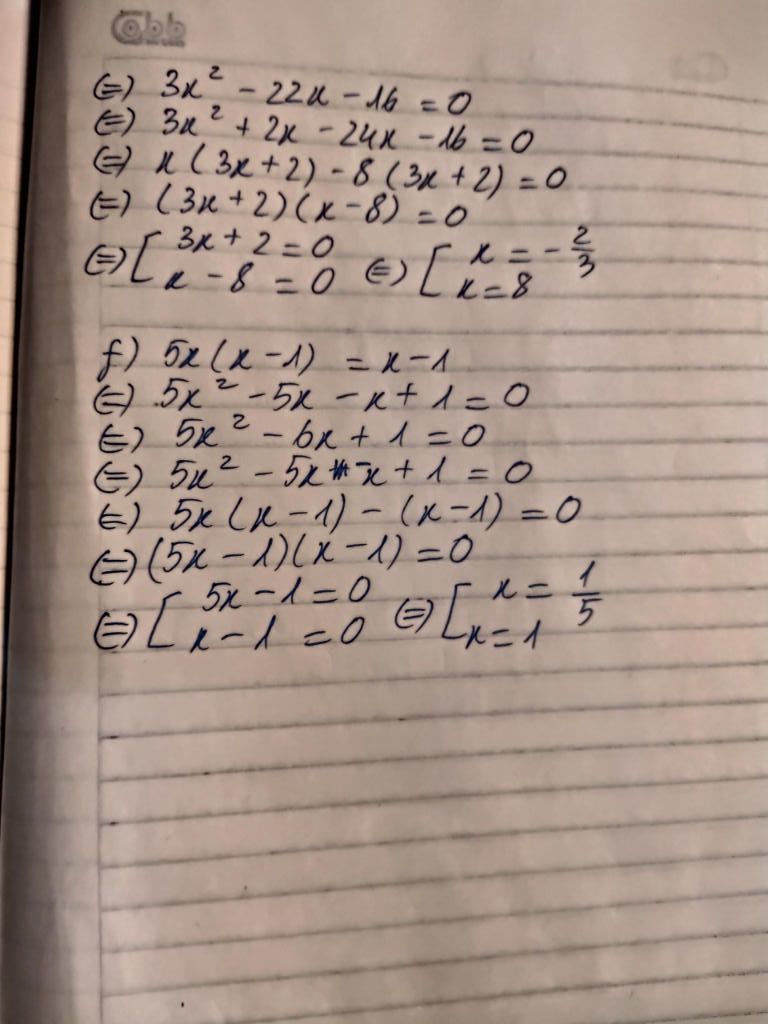 (=) 3x² - 22x - 16 = 0
(=) 3x² + 2x - 24x - 16 = 0
(=) x(3x + 2) - 8(3x + 2) = 0
(=) (3x + 2)(x - 8) = 0
(=) [ 3x + 2 = 0 (=) [ x = -2/3
x - 8 = 0 x = 8
f) 5x(x - 1) = x - 1
(=) 5x² - 5x - x + 1 = 0
(=) 5x² - 6x + 1 = 0
(=) 5x² - 5x - x + 1 = 0
(=) 5x(x - 1) - (x - 1) = 0
(=) (5x - 1)(x - 1) = 0
(=) [ 5x - 1 = 0 (=) [ x = 1/5
x - 1 = 0 x = 1